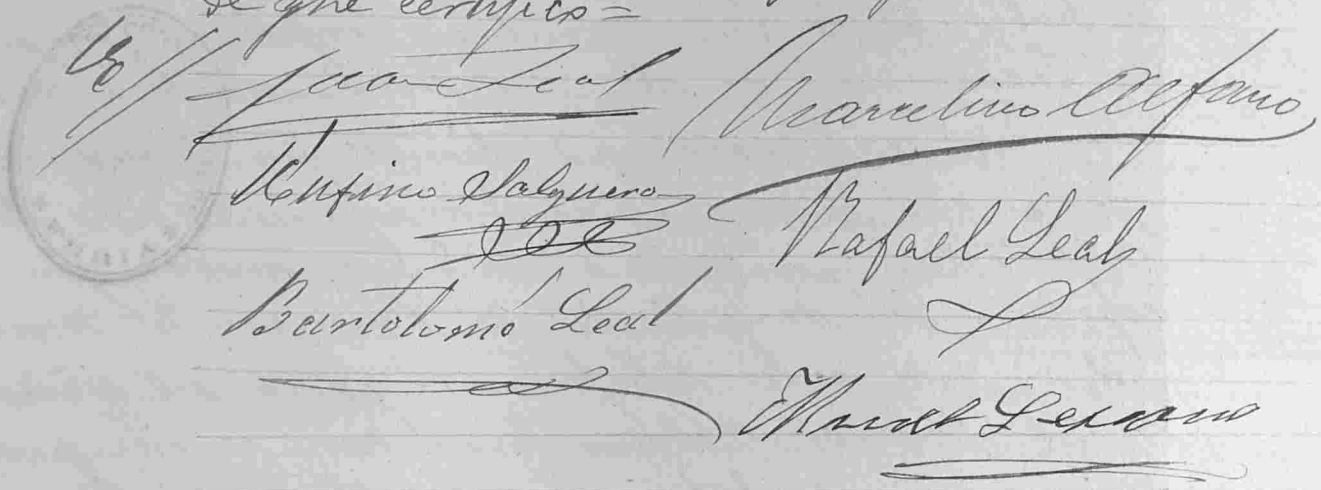 de que certifico=
Juan Leal Marcelino Alfaro
Rufino Salguero
Rafael Leal
Bartolomé Leal
Manuel Lezcano